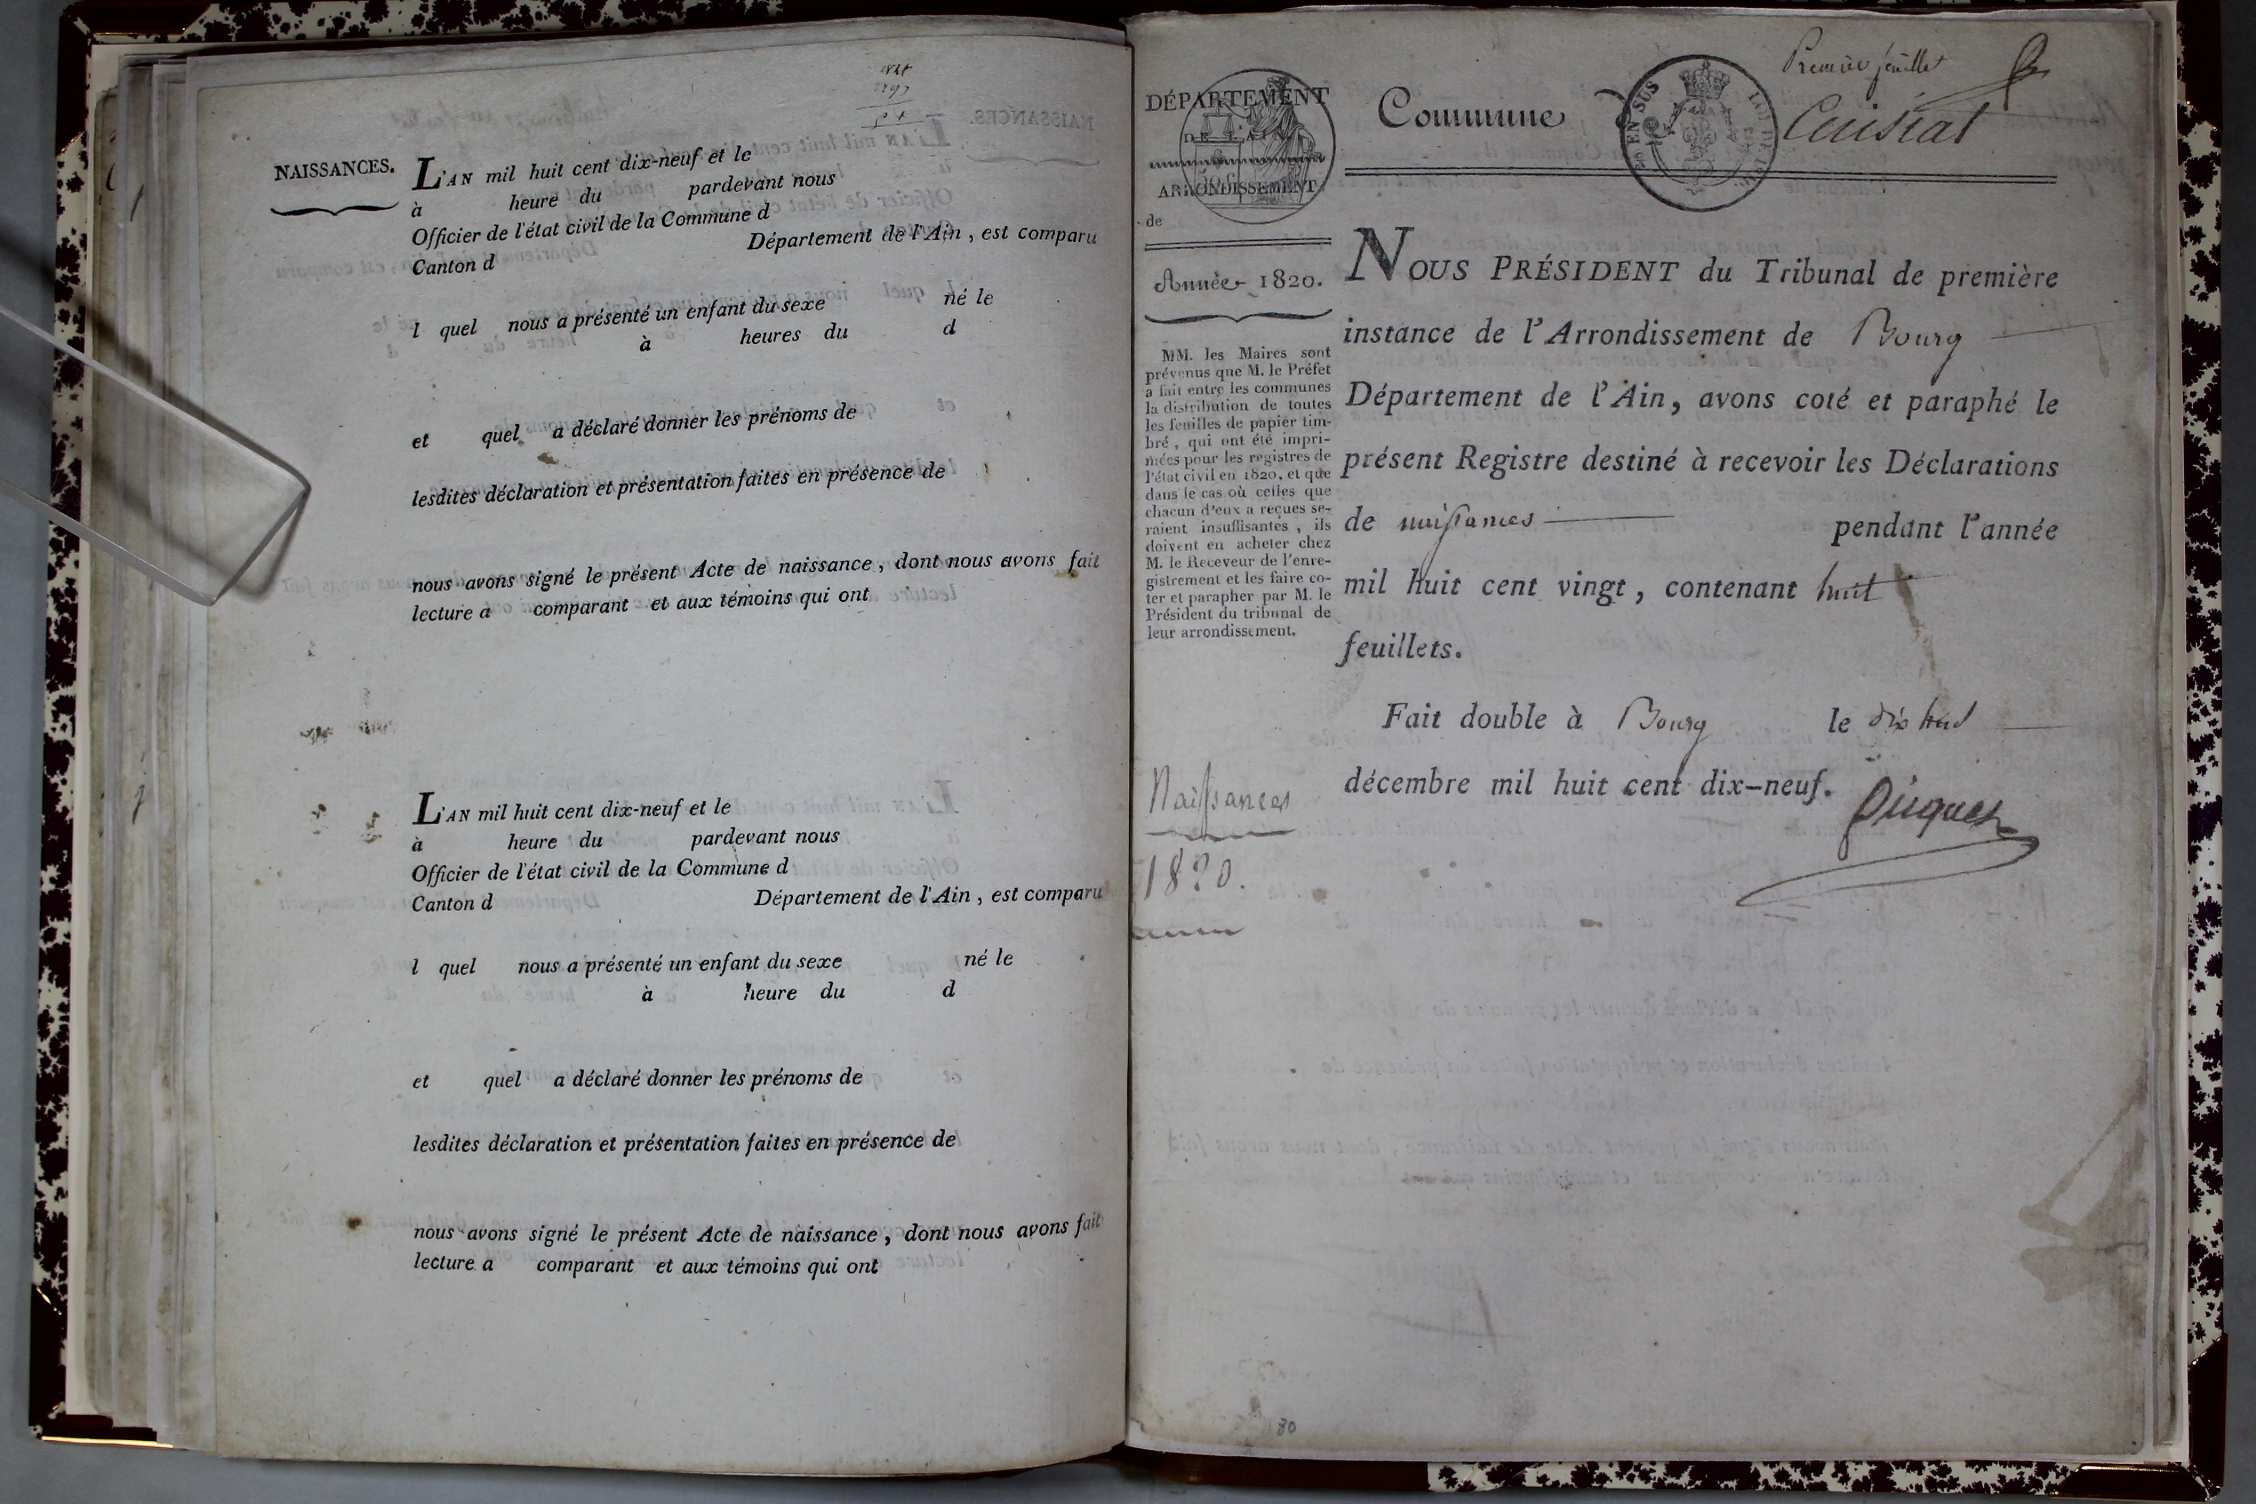 NAISSANCES.
L'AN mil huit cent dix-neuf et le
à heure du pardevant nous
Officier de l'état civil de la Commune d
Canton d Département de l'Ain, est comparu
l quel nous a présenté un enfant du sexe né le
à heures du d
et quel a déclaré donner les prénoms de
lesdites déclaration et présentation faites en présence de
nous avons signé le présent Acte de naissance, dont nous avons fait
lecture a comparant et aux témoins qui ont
L'AN mil huit cent dix-neuf et le
à heure du pardevant nous
Officier de l'état civil de la Commune d
Canton d Département de l'Ain, est comparu
l quel nous a présenté un enfant du sexe né le
à heure du d
et quel a déclaré donner les prénoms de
lesdites déclaration et présentation faites en présence de
nous avons signé le présent Acte de naissance, dont nous avons fait
lecture a comparant et aux témoins qui ont
Premier feuillet
DÉPARTEMENT
DE L'AIN
ARRONDISSEMENT
de
Année 1820.
MM. les Maires sont
prévenus que M. le Préfet
a fait entre les communes
la distribution de toutes
les feuilles de papier tim-
bré, qui ont été impri-
mées pour les registres de
l'état civil en 1820, et que
dans le cas où celles que
chacun d'eux a reçues se-
raient insuffisantes, ils
doivent en acheter chez
M. le Receveur de l'enre-
gistrement et les faire co-
ter et parapher par M. le
Président du tribunal de
leur arrondissement.
Naissances
1820.
Commune d Cuisiat
NOUS PRÉSIDENT du Tribunal de première
instance de l'Arrondissement de Bourg
Département de l'Ain, avons coté et paraphé le
présent Registre destiné à recevoir les Déclarations
de naissances pendant l'année
mil huit cent vingt, contenant huit
feuillets.
Fait double à Bourg le dix huit
décembre mil huit cent dix-neuf.
80